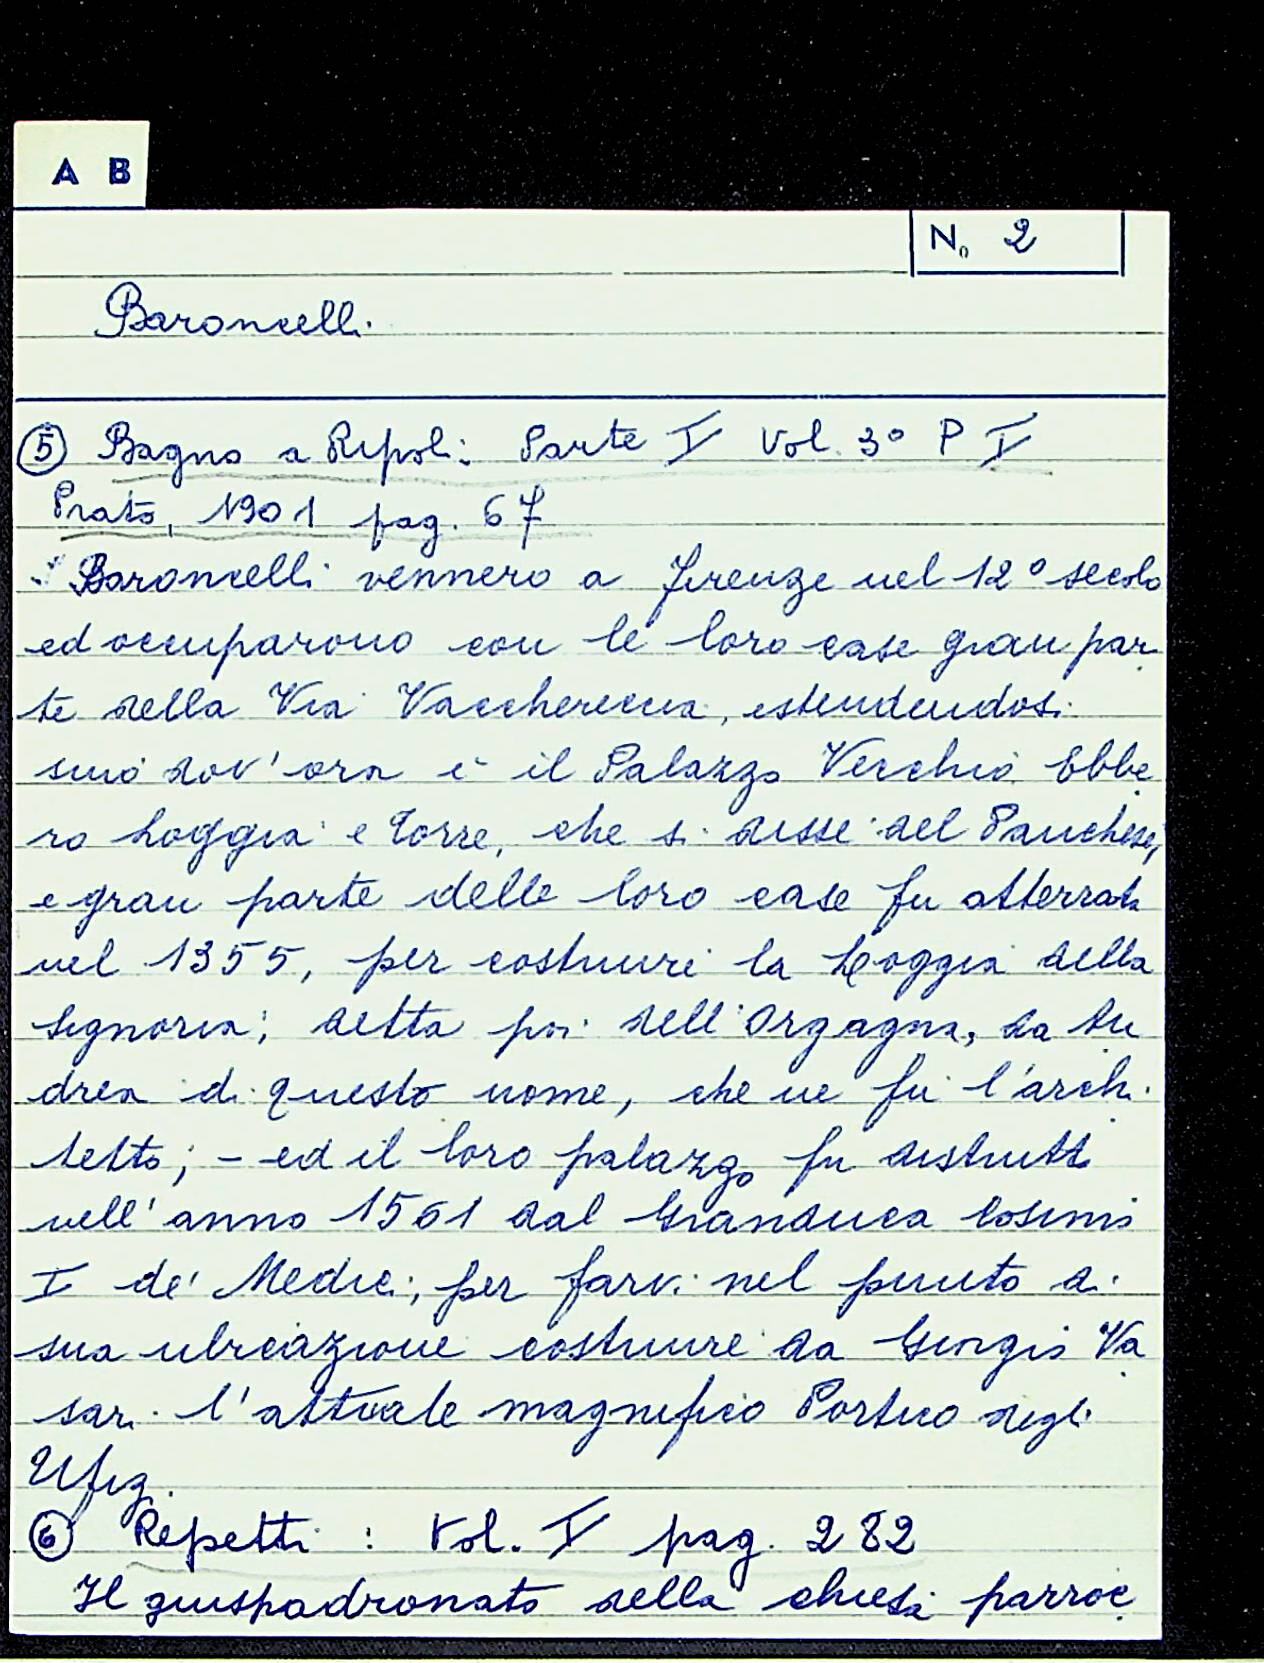 A B
N. 2
Baroncelli
5 Bagno a Ripoli: Parte I Vol. 3° P I
Prato, 1901 pag. 67
Baroncelli vennero a Firenze nel 12° secolo
ed occuparono con le loro case gran par
te della Via Vacchereccia, estendendosi
sino dov'ora è il Palazzo Vecchio Ebbe
ro Loggia e Torre, che si disse del Panchese,
e gran parte delle loro case fu atterrata
nel 1355, per costruire la Loggia della
Signoria; detta poi dell'Orgagna, da An
drea di questo nome, che ne fu l'archi
tetto; - ed il loro palazzo fu distrutto
nell'anno 1561 dal Granduca Cosimo
I de' Medici; per farvi nel punto di
sua ubicazione costruire da Giorgio Va
sari l'attuale magnifico Portico degli
Ufizi
6 Repetti: Vol. I pag. 282
Il giuspadronato della chiesa parroc